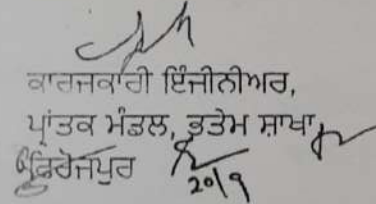 ਕਾਰਜਕਾਰੀ ਇੰਜੀਨੀਅਰ,
ਪ੍ਰਾਂਤਕ ਮੰਡਲ, ਭਤੇਮ ਸ਼ਾਖਾ,
ਫਿਰੋਜਪੁਰ
20/9